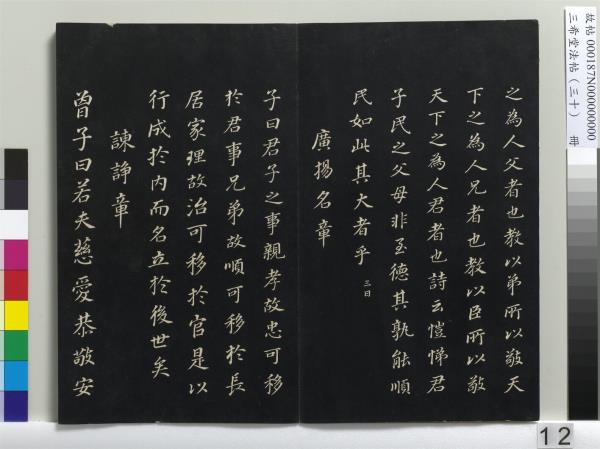 之為人父者也教以弟所以敬天
下之為人兄者也教以臣所以敬
天下之為人君者也詩云愷悌君
子民之父母非至德其孰能順
民如此其大者乎 三日
廣揚名章
子曰君子之事親孝故忠可移
於君事兄弟故順可移於長
居家理故治可移於官是以
行成於內而名立於後世矣
諫諍章
曾子曰若夫慈愛恭敬安
故帖 000187N000000000
三希堂法帖(三十) 冊
12